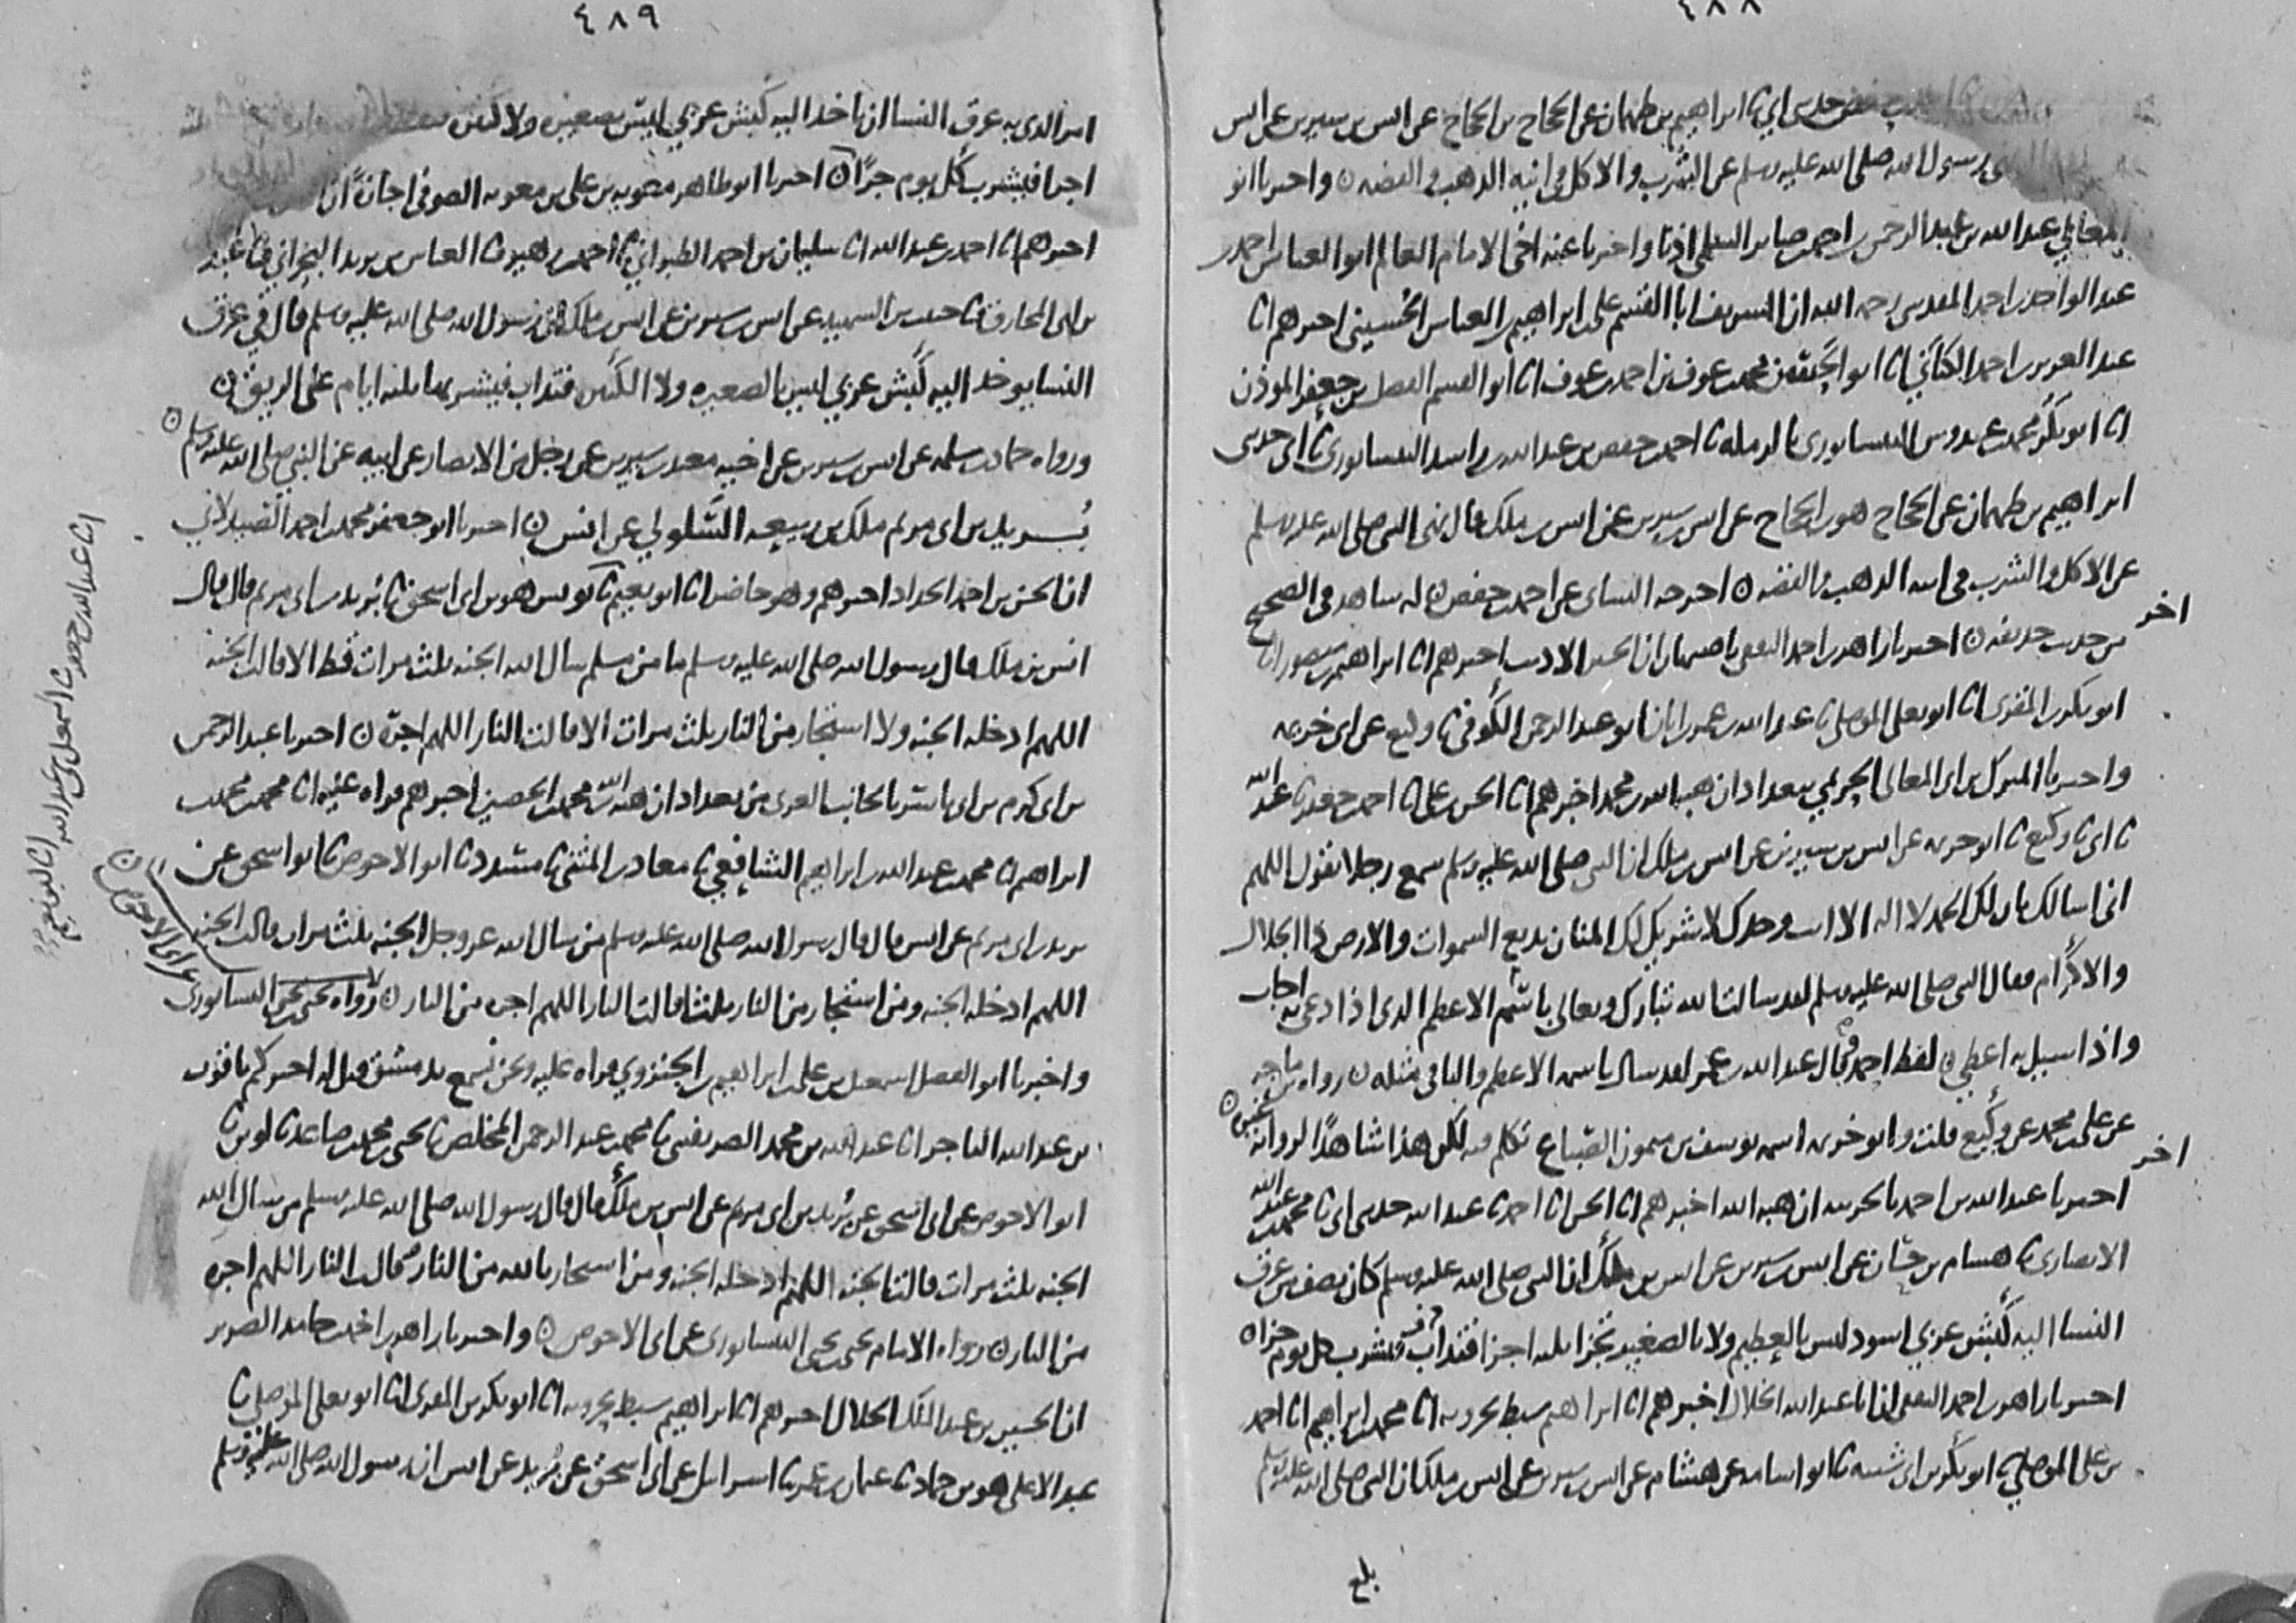 ٤٨٨
حفص حدثني ابي نا ابراهيم بن طهمان عن الحجاج بن الحجاج عن انس بن سيرين عن انس
رسول الله صلى الله عليه وسلم عن الشرب والاكل في انيه الذهب والفضه ن واخبرنا ابو
المعالي عبد الله بن عبد الرحمن بن احمد بن صابر السلمي اذنا واخبرنا عنه اخي الامام العالم ابو العباس احمد بن
عبد الواحد بن احمد المقدسي رحمه الله ان الشريف ابا القسم علي بن ابراهيم بن العباس الحسيني اخبرهم انا
عبد العزيز بن احمد الكتاني انا ابو محمد بن عوف بن احمد بن عوف انا ابو القسم الفضل بن جعفر الموذن
انا ابو بكر محمد بن عبدوس النيسابوري بالرمله نا احمد بن حفص بن عبد الله بن راشد النيسابوري نا ابي حدثني
ابراهيم بن طهمان عن الحجاج هو بن الحجاج عن انس بن سيرين عن انس بن ملك قال نهى النبي صلى الله عليه وسلم
عن الاكل والشرب في انيه الذهب والفضه ن اخرجه النساي عن احمد بن حفص ن له شاهد في الصحيح
من حديث حذيفه ن اخبرنا زاهر بن احمد الثقفي باصبهان ان الاديب اخبرهم انا ابراهيم بن منصور انا
اخر
ابو بكر بن المقرئ انا ابو يعلى الموصلي نا عبد الله بن عمر بن ابان ابو عبد الرحمن الكوفي نا وكيع عن ابي خزيمه
واخبرنا المبرك بن ابي المعالي الحريمي ببغداد ان هبة الله بن محمد اخبرهم انا الحسن بن علي انا احمد بن جعفر نا عبد الله
نا ابي نا وكيع نا ابو خزيمه عن انس بن سيرين عن انس بن ملك ان النبي صلى الله عليه وسلم سمع رجلا يقول اللهم
اني اسالك بان لك الحمد لا اله الا انت وحدك لا شريك لك المنان بديع السموات والارض ذا الجلال
والاكرام فقال النبي صلى الله عليه وسلم لقد سالت الله تبارك وتعالى باسمه الاعظم الذي اذا دعي به اجاب
واذا سيل به اعطي ن لفظ احمد وقال عبد الله بن عمر لقد سال باسمه الاعظم والباقي مثله ن رواه بن ماجه
عن علي بن محمد عن وكيع قلت وابو خزيمه اسمه يوسف بن ميمون الصباغ تكلم فيه لكن هذا شاهدا لروايه غيره ن
اخر
اخبرنا عبد الله بن احمد بالحربيه ان هبه الله اخبرهم انا الحسن انا احمد نا عبد الله حدثني ابي نا محمد بن عبد الله
الانصاري نا هشام بن حسان عن انس بن سيرين عن انس بن ملك ان النبي صلى الله عليه وسلم كان يصف من عرق
النسا اليه كبش عربي اسود ليس بالعظيم ولا بالصغير تجزا ثلثه اجزا فتذاب فتشرب كل يوم جزا ن
اخبرنا زاهر بن احمد الثقفي ان ابا عبد الله الخلال اخبرهم انا ابراهيم سبط بحرويه انا محمد بن ابراهيم انا احمد
بن علي الموصلي نا ابو بكر بن ابي شيبه نا ابو اسامه عن هشام عن انس بن سيرين عن انس بن ملك ان النبي صلى الله عليه وسلم
بلغ
٤٨٩
امر الذي به عرق النسا ان ياخذ اليه كبش عربي ليس بصغيره ولا
اجزا فيشرب كل يوم جزا ن اخبرنا ابو طاهر معويه بن علي بن معويه الصوفي اجازة ان
اخبرهم انا احمد بن عبد الله انا سليمان بن احمد الطبراني نا احمد بن زهير نا العباس بن يزيد البحراني نا عبد
بن ابي المخارق نا حبيب بن الشهيد عن انس بن سيرين عن انس بن ملك عن رسول الله صلى الله عليه وسلم قال في عرق
النسا يوخذ اليه كبش عربي ليس بالصغيره ولا الكبير فتذاب فيشربها ثلثه ايام على الريق ن
ورواه حماد بن سلمه عن انس بن سيرين عن اخيه معبد بن سيرين عن رجل من الانصار عن ابيه عن النبي صلى الله عليه وسلم ن
بُريد بن ابي مريم ملك بن ربيعه السلولي عن انس ن اخبرنا ابو جعفر محمد بن احمد الصيدلاني
ان الحسن بن احمد الحداد اخبرهم وهو حاضر انا ابو نعيم نا يونس هو بن ابي اسحق نا بُريد بن ابي مريم قال قال
انس بن ملك قال رسول الله صلى الله عليه وسلم ما من مسلم سال الله الجنه ثلث مرات قط الا قالت الجنه
اللهم ادخله الجنه ولا استجار من النار ثلث مرات الا قالت النار اللهم اجره ن اخبرنا عبد الرحمن
بن ابي كرم بن ابي ياسر بالجانب الغربي من بغداد ان هبة الله بن محمد بن الحصين اخبرهم قراه عليه انا محمد بن محمد بن
ابراهيم نا محمد بن عبد الله بن ابراهيم الشافعي نا معاذ بن المثنى نا مسدد نا ابو الاحوص نا ابو اسحق عن
بريد بن ابي مريم عن انس قال قال رسول الله صلى الله عليه وسلم من سال الله عز وجل الجنه ثلث مرات قالت الجنه
اللهم ادخله الجنه ومن استجار من النار ثلثا قالت النار اللهم اجره من النار ن رواه يحيى بن يحيى النيسابوري
عن ابي الاحوص ن
واخبرنا ابو الفضل اسمعيل بن علي بن ابراهيم الجنزوي قراه عليه ونحن نسمع بدمشق قيل له اخبركم ياقوت
بن عبد الله التاجر انا عبد الله بن محمد الصريفيني نا محمد بن عبد الرحمن المخلص نا يحيى بن محمد بن صاعد نا لوين نا
ابو الاحوص عن ابي اسحق عن بُريد بن ابي مريم عن انس بن ملك قال قال رسول الله صلى الله عليه وسلم من سال الله
الجنه ثلث مرات قالت الجنه اللهم ادخله الجنه ومن استجار بالله من النار قالت النار اللهم اجره
من النار ن رواه الامام يحيى بن يحيى النيسابوري عن ابي الاحوص ن واخبرنا زاهر بن احمد بن حامد الضرير
ان الحسين بن عبد الملك الخلال اخبرهم انا ابراهيم سبط بحرويه انا ابو بكر بن المقرئ انا ابو يعلى الموصلي نا
عبد الاعلى هو بن حماد نا عثمان بن عمر نا اسرائيل عن ابي اسحق عن بُريد عن انس ان رسول الله صلى الله عليه وسلم
انا عبد الله بن جعفر نا اسمعيل بن عبد الله نا ابو نعيم